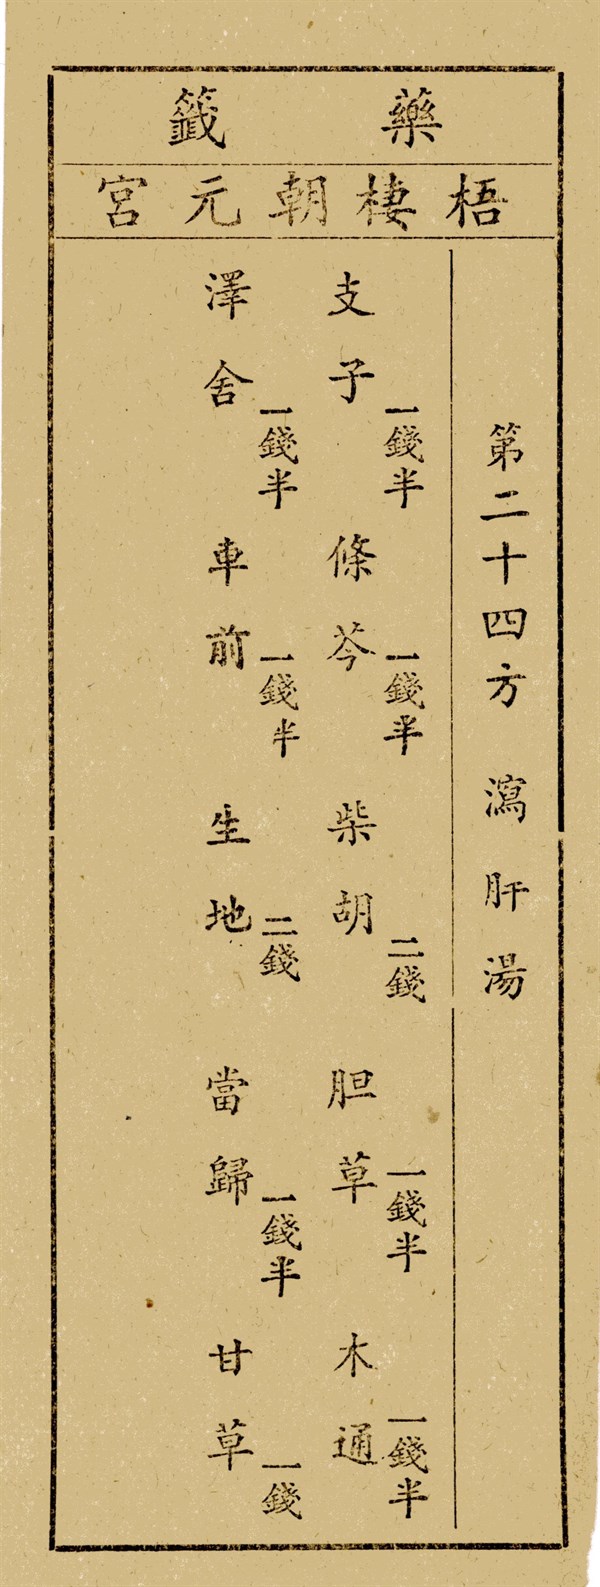 藥籤
梧棲朝元宮
第二十四方 瀉肝湯
支子 一錢半 條芩 一錢半 柴胡 二錢 胆草 一錢半 木通 一錢半
澤舍 一錢半 車前 一錢半 生地 二錢 當歸 一錢半 甘草 一錢